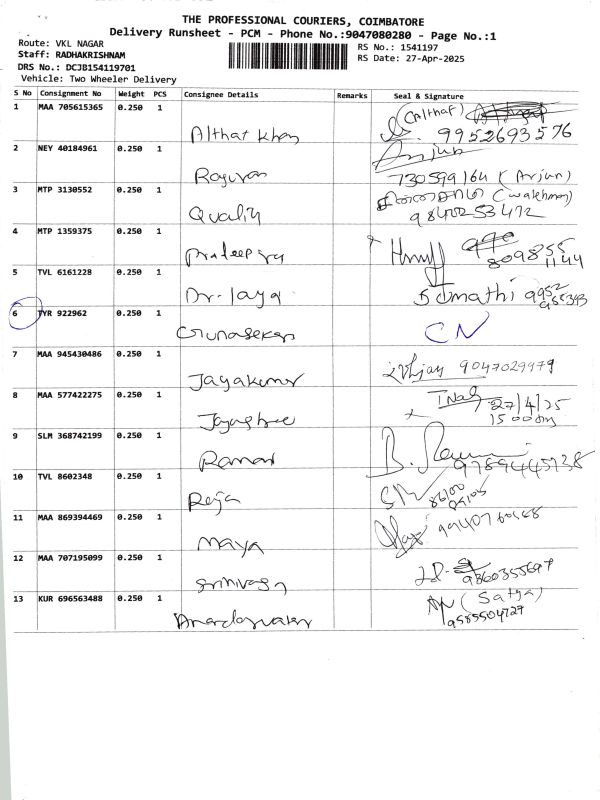 THE PROFESSIONAL COURIERS, COIMBATORE
Delivery Runsheet - PCM - Phone No.:9047080280 - Page No.:1
Route: VKL NAGAR
Staff: RADHAKRISHNAM
DRS No.: DCJB154119701
Vehicle: Two Wheeler Delivery
RS No.: 1541197
RS Date: 27-Apr-2025
S No Consignment No Weight PCS Consignee Details Remarks Seal & Signature
1 MAA 705615365 0.250 1 Althat Khan (Althaf) 9952693576
2 NEY 40184961 0.250 1 Raguvan Arjun 730599164 (Arjun)
3 MTP 3130552 0.250 1 Quality (Lakhman) 9840253472
4 MTP 1359375 0.250 1 Pradeep 809855 1144
5 TVL 6161228 0.250 1 Dr. Jaya Sumathi 9952
6 TYR 922962 0.250 1 Gunasekar CN
7 MAA 945430486 0.250 1 Jayakumar Vhjay 9047029979
8 MAA 577422275 0.250 1 Jayashree 27/4/25
9 SLM 368742199 0.250 1 Raman B. 9789445738
10 TVL 8602348 0.250 1 Reja
11 MAA 869394469 0.250 1 Maya
12 MAA 707195099 0.250 1 Srinivasan
13 KUR 696563488 0.250 1 (Satya) 9585504727